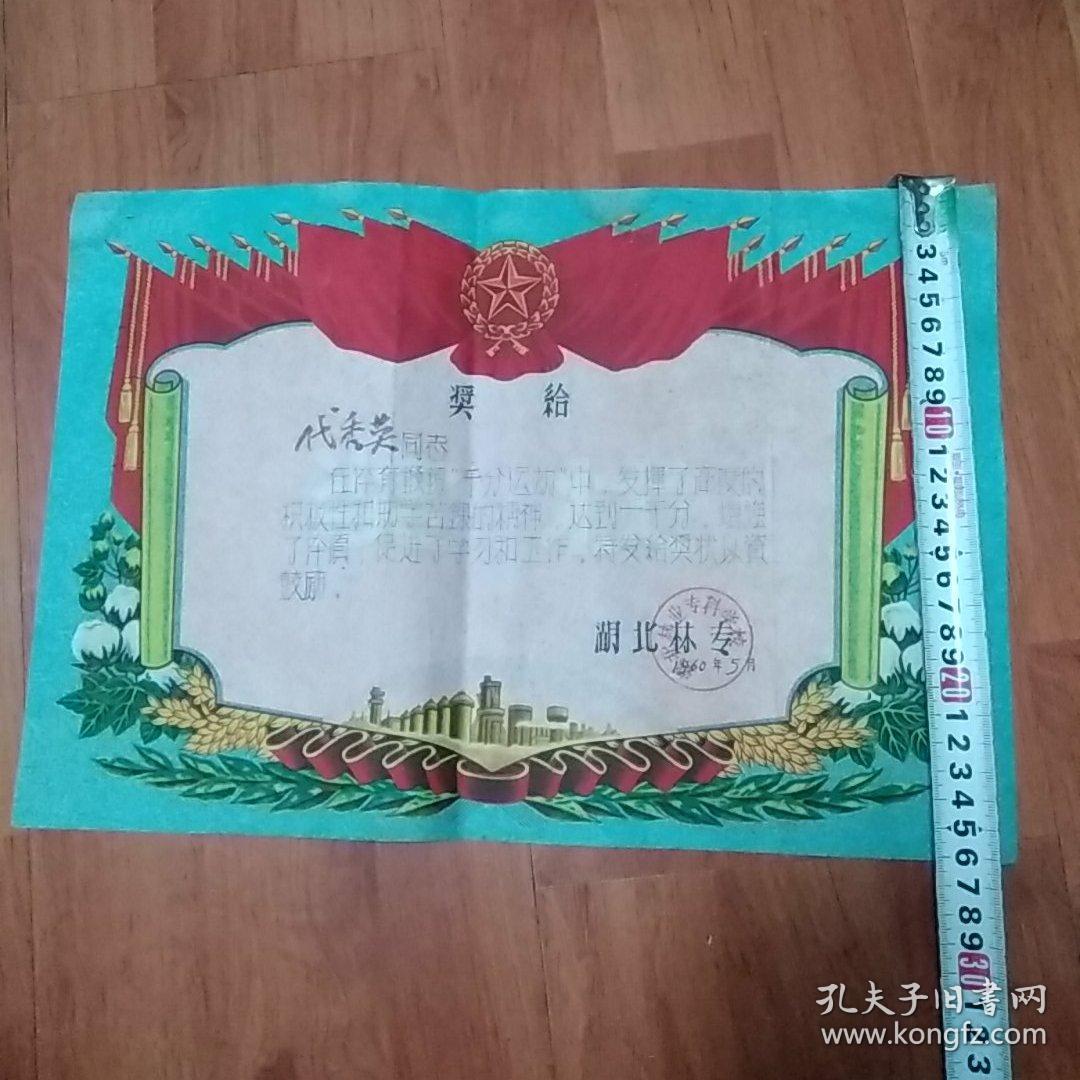 奖 給
代秀英同志
在体育锻炼“千分运动”中，发揮了高度的
积极性和刻苦锻的精神，达到一千分，增強
了体质，促进了学习和工作，特发給奖状以資
鼓励．
湖北林专
业专科学校
1960年5月
3 4 5 6 7 8 9 10 1 2 3 4 5 6 7 8 9 20 1 2 3 4 5 6 7 8 9 30 1 2 3
孔夫子旧書网
www.kongfz.com